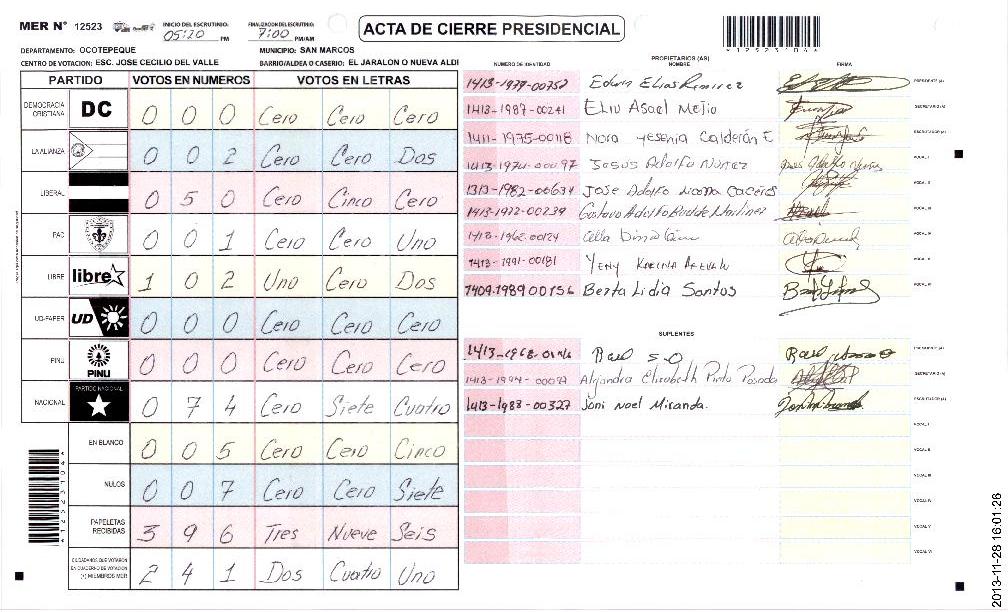 MER N° 12523 INICIO DEL ESCRUTINIO: 05:20 PM FINALIZACION DEL ESCRUTINIO: 7:00 PM/AM
ACTA DE CIERRE PRESIDENCIAL
DEPARTAMENTO: OCOTEPEQUE MUNICIPIO: SAN MARCOS
CENTRO DE VOTACION: ESC. JOSE CECILIO DEL VALLE BARRIO/ALDEA O CASERIO: EL JARALON O NUEVA ALDI
PARTIDO VOTOS EN NUMEROS VOTOS EN LETRAS
DEMOCRACIA CRISTIANA DC 0 0 0 Cero Cero Cero
EN ALIANZA 0 0 2 Cero Cero Dos
LIBERAL 0 5 0 Cero Cinco Cero
PAC 0 0 1 Cero Cero Uno
LIBRE libre 1 0 2 Uno Cero Dos
UD-FAPER UD 0 0 0 Cero Cero Cero
PINU PINU 0 0 0 Cero Cero Cero
NACIONAL PARTIDO NACIONAL 0 7 4 Cero Siete Cuatro
EN BLANCO 0 0 5 Cero Cero Cinco
NULOS 0 0 7 Cero Cero Siete
PAPELETAS RECIBIDAS 3 9 6 Tres Nueve Seis
CIUDADANOS QUE VOTARON EN CUADERNO DE VOTACION (+) MIEMBROS MER 2 4 1 Dos Cuatro Uno
PROPIETARIOS (AS)
NUMERO DE IDENTIDAD NOMBRE FIRMA
1413-1979-00752 Edwin Elias Ramirez PRESIDENTE (A)
1413-1987-00241 Elio Asael Mejio SECRETARIO (A)
1411-1975-00118 Nora Yesenia Calderón E ESCRUTADOR (A)
1413-1974-00097 Jesus Adolfo Nunez VOCAL I
1313-1982-00634 Jose Adolfo Caceres VOCAL II
1413-1972-00239 Gustavo Adolfo Martinez VOCAL III
1413-1962-00124 VOCAL IV
1413-1991-00181 Yeny Karina Arevalo VOCAL V
1409-1989 00156 Berta Lidia Santos VOCAL VI
SUPLENTES
1413-1968 PRESIDENTE (A)
1413-1994-00097 Alejandra Elizabeth Pinto Posada SECRETARIO (A)
1413-1988-00327 Joni Noel Miranda. ESCRUTADOR (A)
VOCAL I
VOCAL II
VOCAL III
VOCAL IV
VOCAL V
VOCAL VI
2013-11-28 16:01:26